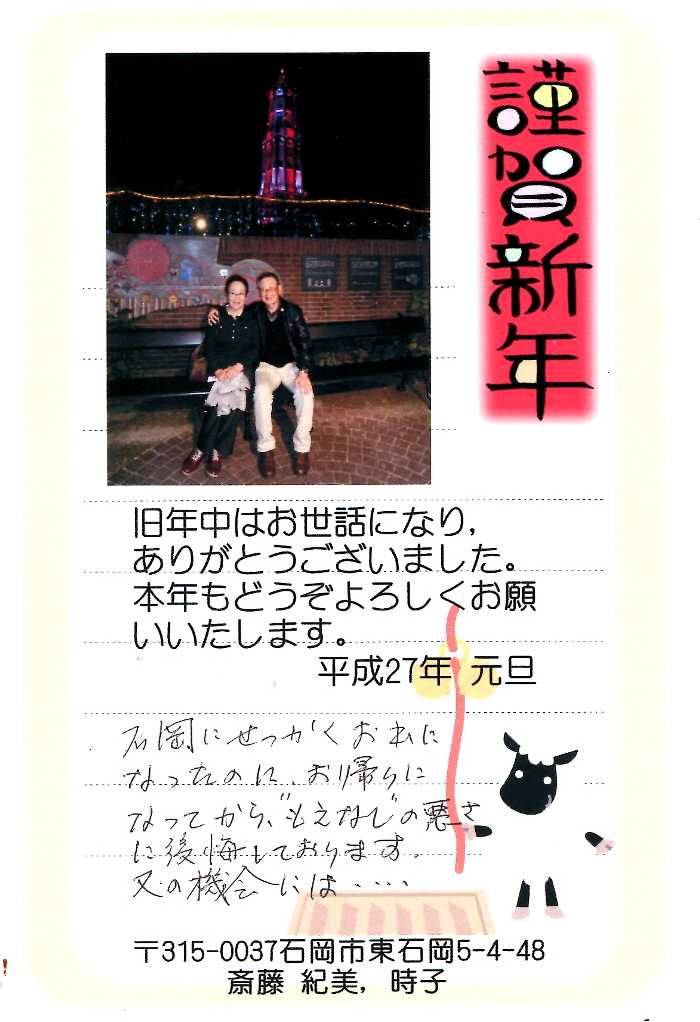 謹賀新年
旧年中はお世話になり,
ありがとうございました。
本年もどうぞよろしくお願
いいたします。
平成27年 元旦
石岡にせっかくお出に
なったのに、お帰りに
なってから、"もてなし"の悪さ
に後悔しております。
又の機会には・・・・
〒315-0037石岡市東石岡5-4-48
斎藤 紀美, 時子